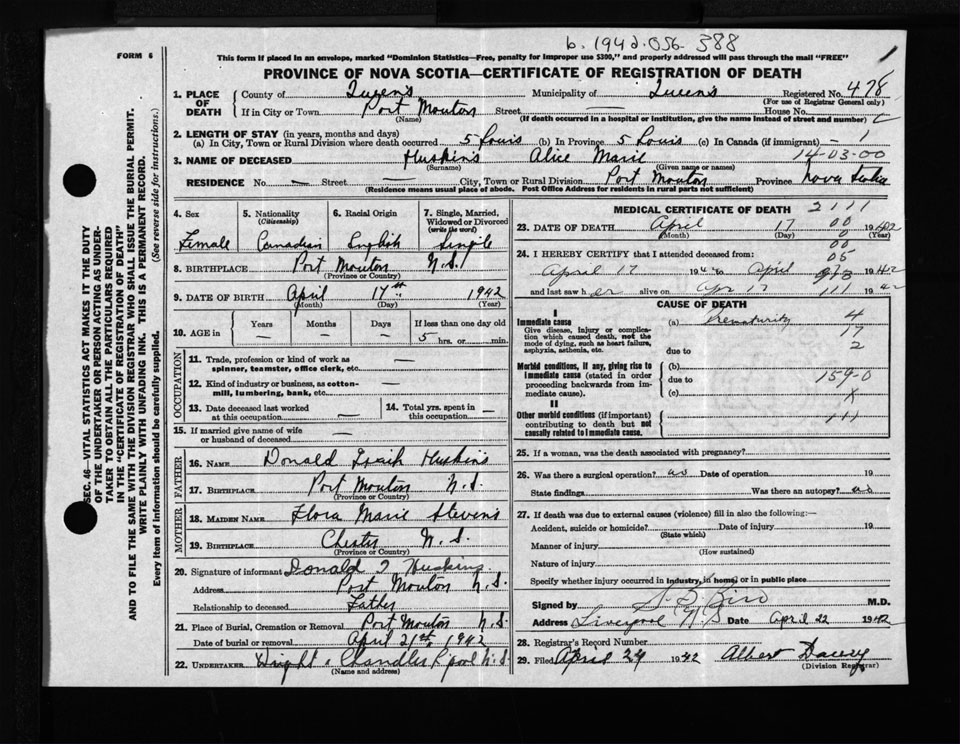 b. 1942-056-388
FORM 6
1
This form if placed in an envelope, marked "Dominion Statistics—Free, penalty for improper use $300," and properly addressed will pass through the mail "FREE"
PROVINCE OF NOVA SCOTIA—CERTIFICATE OF REGISTRATION OF DEATH
SEC. 46—VITAL STATISTICS ACT MAKES IT THE DUTY
OF THE UNDERTAKER OR PERSON ACTING AS UNDER-
TAKER TO OBTAIN ALL THE PARTICULARS REQUIRED
IN THE "CERTIFICATE OF REGISTRATION OF DEATH"
AND TO FILE THE SAME WITH THE DIVISION REGISTRAR WHO SHALL ISSUE THE BURIAL PERMIT.
WRITE PLAINLY WITH UNFADING INK. THIS IS A PERMANENT RECORD.
Every item of information should be carefully supplied. (See reverse side for instructions.)
1. PLACE OF DEATH County of Queens Municipality of Queens Registered No. 478
(For use of Registrar General only)
If in City or Town Port Mouton Street — House No.
(Name) (If death occurred in a hospital or institution, give the name instead of street and number)
2. LENGTH OF STAY (in years, months and days)
(a) In City, Town or Rural Division where death occurred 5 hours (b) In Province 5 hours (c) In Canada (if immigrant) — 1
3. NAME OF DECEASED Huskins Alice Marie 14-03-00
(Surname) (Given name or names)
RESIDENCE No. — Street — City, Town or Rural Division Port Mouton Province Nova Scotia
(Residence means usual place of abode. Post Office Address for residents in rural parts not sufficient)
4. Sex 5. Nationality (Citizenship) 6. Racial Origin 7. Single, Married, Widowed or Divorced (write the word)
Female Canadian English Single
8. BIRTHPLACE Port Mouton N.S.
(Province or Country)
9. DATE OF BIRTH April 17th 1942
(Month) (Day) (Year)
10. AGE in Years Months Days If less than one day old
— — — 5 hrs. or min.
OCCUPATION
11. Trade, profession or kind of work as spinner, teamster, office clerk, etc. —
12. Kind of industry or business, as cotton-mill, lumbering, bank, etc. —
13. Date deceased last worked at this occupation — 14. Total yrs. spent in this occupation. —
15. If married give name of wife or husband of deceased —
FATHER
16. NAME Donald Huskins
17. BIRTHPLACE Port Mouton N.S.
(Province or Country)
MOTHER
18. MAIDEN NAME Flora Marie Stevens
19. BIRTHPLACE Chester N.S.
(Province or Country)
20. Signature of informant Donald Huskins
Address Port Mouton N.S.
Relationship to deceased Father
21. Place of Burial, Cremation or Removal Port Mouton N.S.
Date of burial or removal April 21st, 1942
22. UNDERTAKER Chandler L'pool N.S.
(Name and address)
MEDICAL CERTIFICATE OF DEATH 2111
23. DATE OF DEATH April 17 00 1942
(Month) (Day) (Year)
00
24. I HEREBY CERTIFY that I attended deceased from: 05
April 17 1942 to April 1942
and last saw her alive on Apr 17 111 1942
CAUSE OF DEATH
I
Immediate cause (a) Prematurity 4
Give disease, injury or complication which caused death, not the mode of dying, such as heart failure, asphyxia, asthenia, etc. 17
due to 2
Morbid conditions, if any, giving rise to immediate cause (stated in order proceeding backwards from immediate cause). (b)
due to 159-0
(c) X
II
Other morbid conditions (if important) contributing to death but not causally related to immediate cause. 111
25. If a woman, was the death associated with pregnancy?
26. Was there a surgical operation? no Date of operation 19
State findings Was there an autopsy? no
27. If death was due to external causes (violence) fill in also the following:—
Accident, suicide or homicide? Date of injury 19
(State which)
Manner of injury
(How sustained)
Nature of injury
Specify whether injury occurred in industry, in home, or in public place
Signed by M.D.
Address Liverpool N.S Date April 22 1942
28. Registrar's Record Number
29. Filed April 24 1942 Albert Dacey
(Division Registrar)